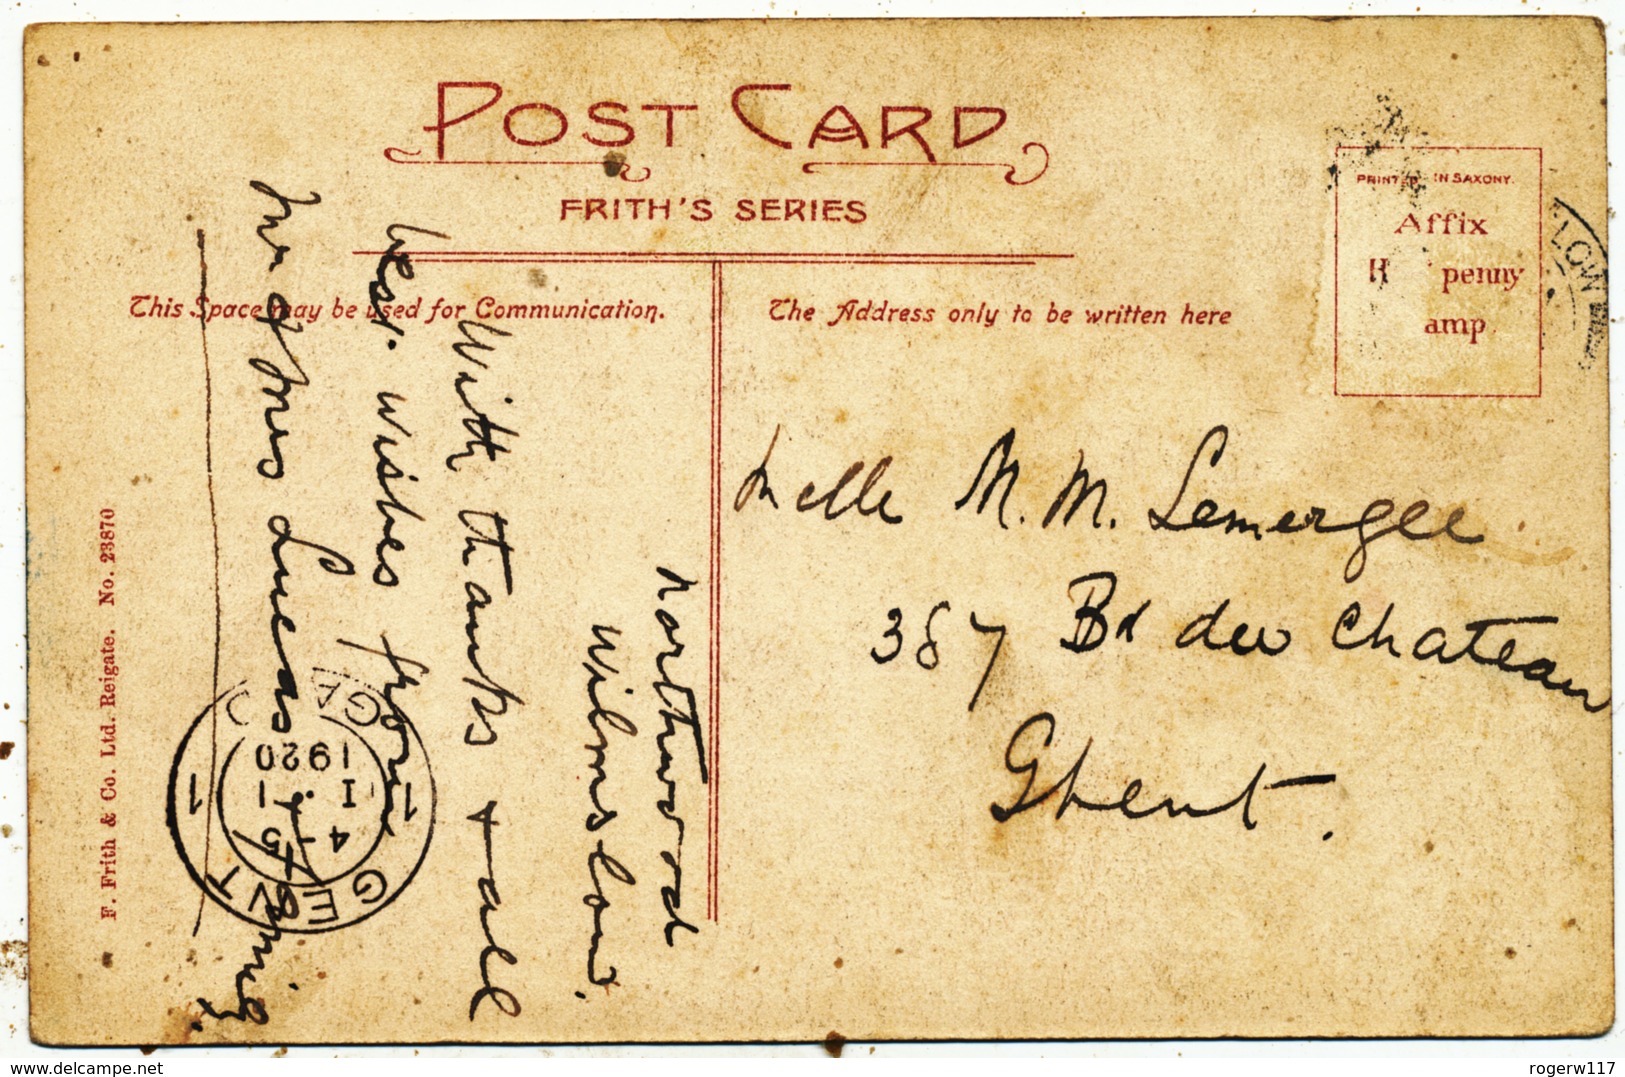 POST CARD
FRITH'S SERIES
This Space may be used for Communication.
The Address only to be written here
PRINTED IN SAXONY.
Affix
H penny
amp
LOW
Melle M. M. Lemergee
387 Bd du Chateau
Ghent.
Northwood
Wilmslow.
With thanks + all
best. wishes from
Mr & Mrs Lucas + family.
GENT
1 GAND 1
4-5
1920
F. Frith & Co. Ltd. Reigate. No. 23870
www.delcampe.net
rogerw117